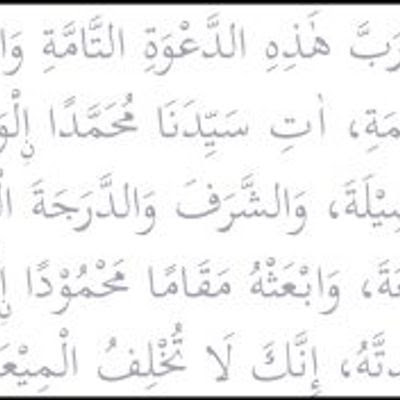 رَبَّ هٰذِهِ الدَّعْوَةِ التَّامَّةِ
ـمَةِ، اٰتِ سَيِّدَنَا مُحَمَّدًا اِۨلْوَ
ـسِيْلَةَ، وَالشَّرَفَ وَالدَّرَجَةَ
ـعَةَ، وَابْعَثْهُ مَقَامًا مَحْمُوْدًا
ـدتَّهُ، إِنَّكَ لَا تُخْلِفُ الْمِيْعَـ